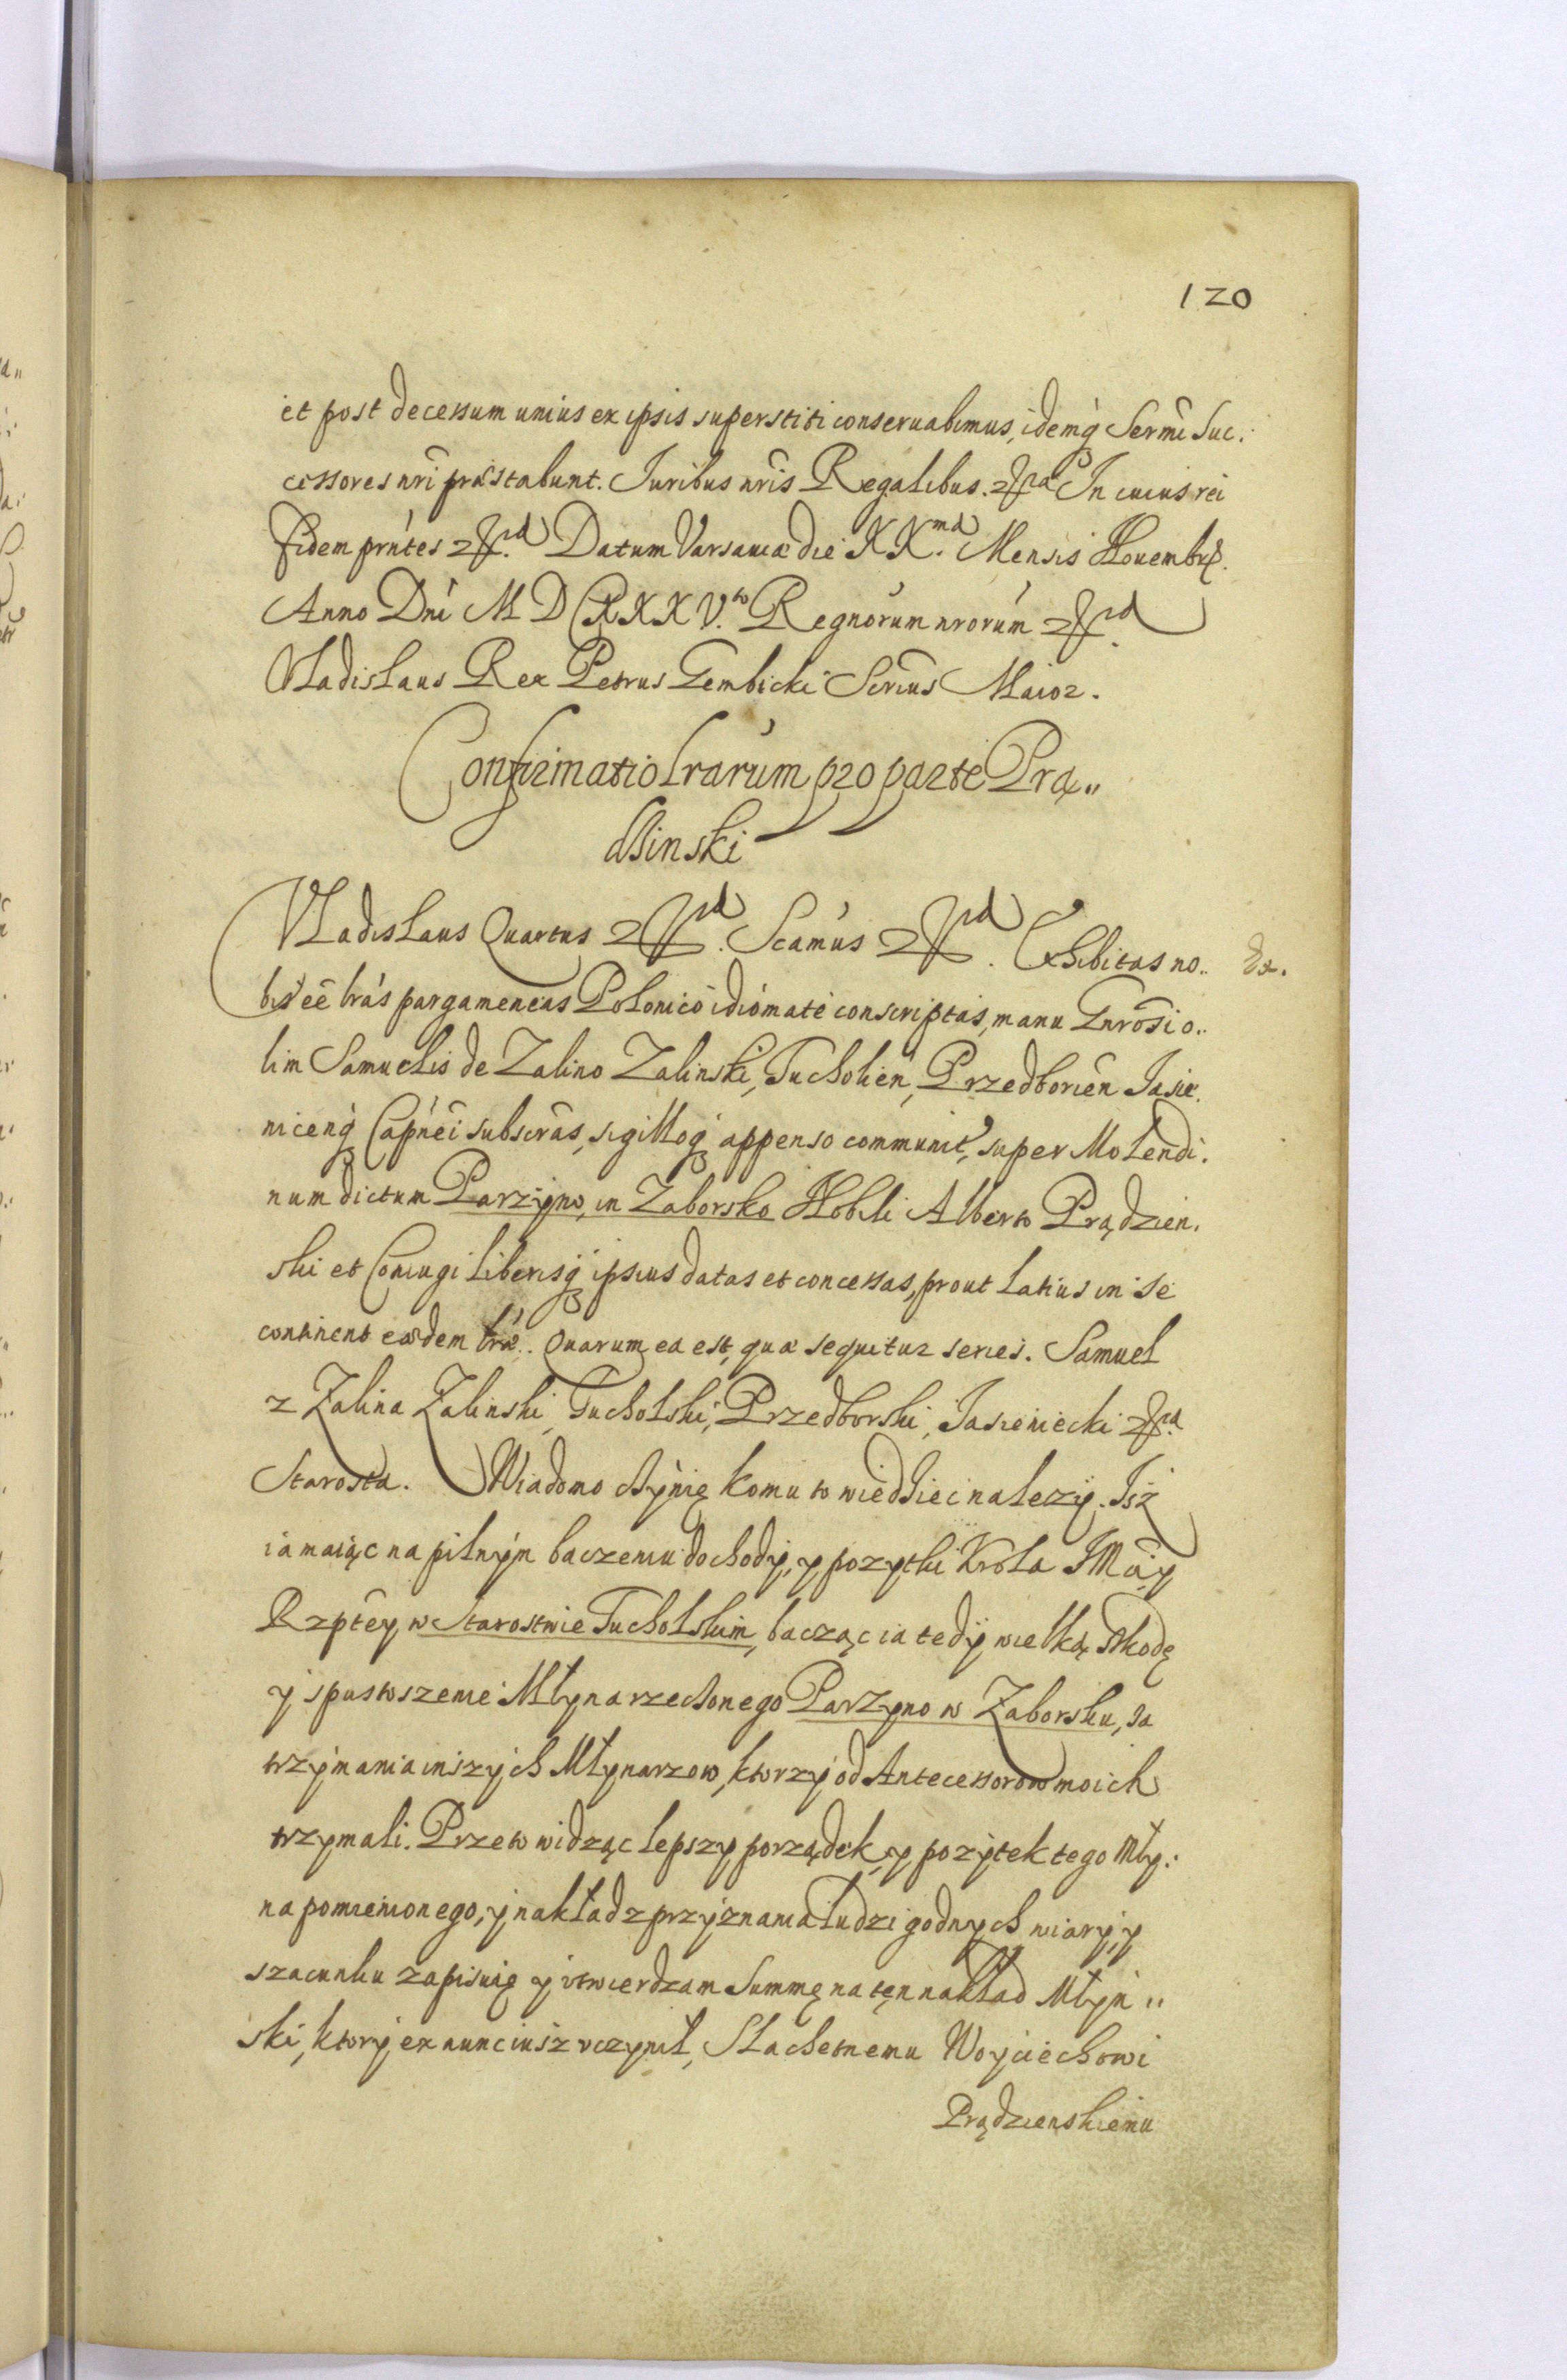 120
et post decessum unius ex ipsis superstiti conseruabimus, idemq́ Sermi Suc:
cessores nri præstabunt. Iuribus nris Regalibus. &ra In cuius rei
fidem prntes &ra. Datum Varsauiæ die XX.ma Mensis Nouembrꝭ.
Anno Dni MDCXXXV.to Regnorum nrorum &ra.
Vladislaus Rex Petrus Gembicki Scrius Maior.
Confirmatio lrarum pro parte Prą„
dzinski
Vladislaus Quartus &ra. Scamus &ra. Exhibitas no..
bis eē lras pargameneas Polonico idiomate conscriptas, manu Gnrosi o..
lim Samuelis de Zalino Zalinski, Tucholien, Przedborien Jasie.
niceng Capnei subscras, sigilloq appenso communit, super Molendi.
num dictum Parzyno, in Zaborsko Nobili Alberto Prądzien.
ski et Coniugi liberisq ipsius datas et concessas, prout latius in se
continent eædem lræ. Quarum ea est, quæ sequitur series. Samuel
z Zalina Zalinski, Tucholski, Przedborski, Jasieniecki &ra
Starosta. Wiadomo czynię komu to wiedzieć nalezy. Isz
ia maiąc na pilnym baczeniu dochody, y pozytki Krola JMci, y
Rzptey w Starostwie Tucholskim, bacząc ia tedy wielką szkodę
y spustoszenie Młyna rzeczonego Parzyno w Zaborsku, za
trzymania inszych Młynarzow, ktorzy od Antecessorow moich
trzymali. Przeto widząc lepszy porządek, y pozytek tego Mły:
na pomienionego, y nakład z przyznania ludzi godnych wiary, y
szacunku zapisuię y vtwierdzam Summę na ten nakład Młyn„
ski, ktory ex nunc iusz vczynił, Slachetnemu Woyciechowi
Prądzienskiemu